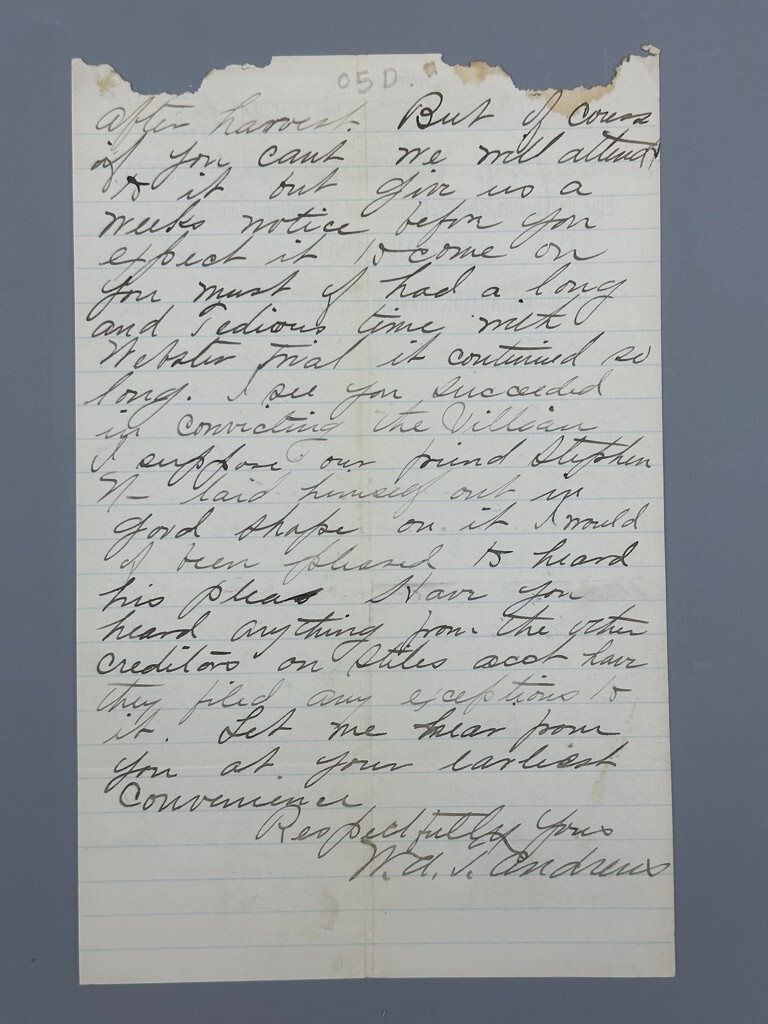 05D.
after harvest. But of cours
if you cant we will attend
to it but give us a
weeks notice befor you
expect it to come on
you must of had a long
and Tedious time with
Webster Trial it continued so
long. I see you succeeded
in convicting the Villian
I suppose our friend Stephen
N- laid himself out in
good shape on it I would
of been pleased to heard
his pleas Have you
heard anything from the other
creditors on Stiles acct have
they filed any exceptions to
it. Let me hear from
you at your earliest
Convenience
Respectfully yours
W. A. S. Andrews